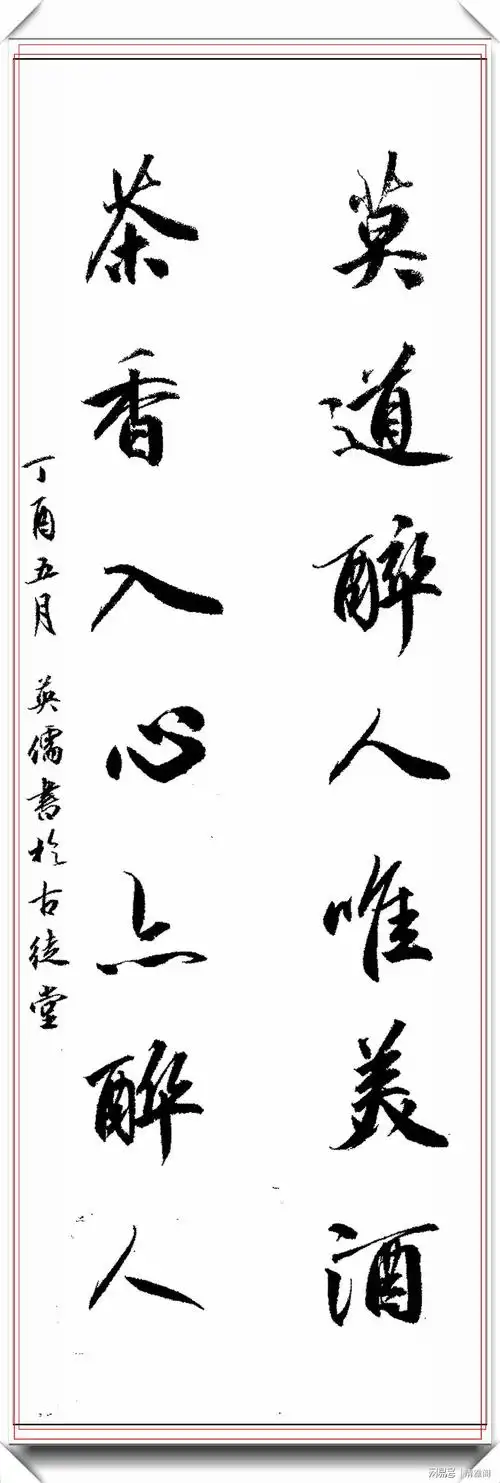 莫道醉人唯美酒
茶香入心亦醉人
丁酉五月 英儒書於古徒堂
网易号 | 精雅阁